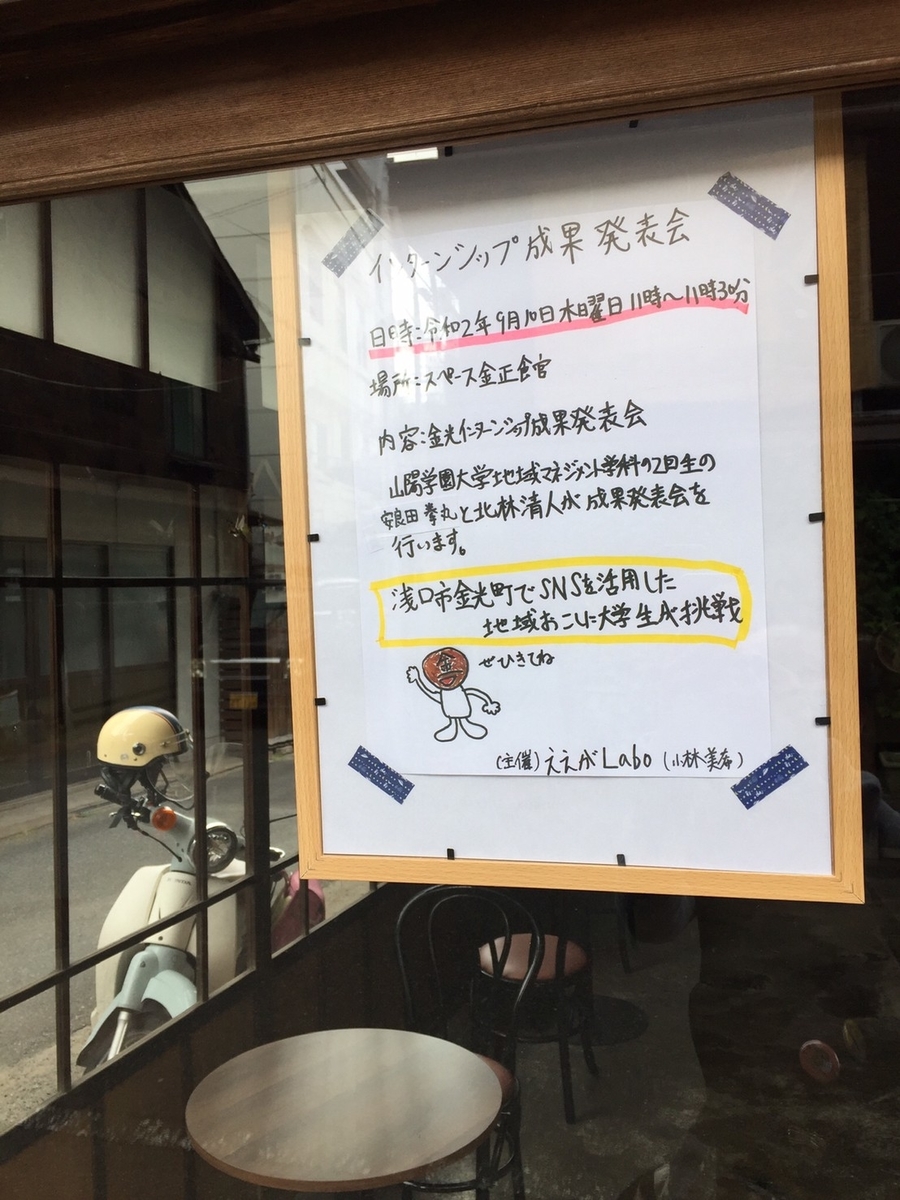 インターンシップ成果発表会
日時:令和2年9月10日木曜日11時〜11時30分
場所:スペース金正食官
内容:金光インターンシップ成果発表会
山陽学園大学地域マネジメント学科の2回生の
安良田 拳丸と北林清人が成果発表会を
行います。
浅口市金光町でSNSを活用した
地域おこしに大学生が挑戦
金
ぜひきてね
(主催)ええがLabo(小林美希)